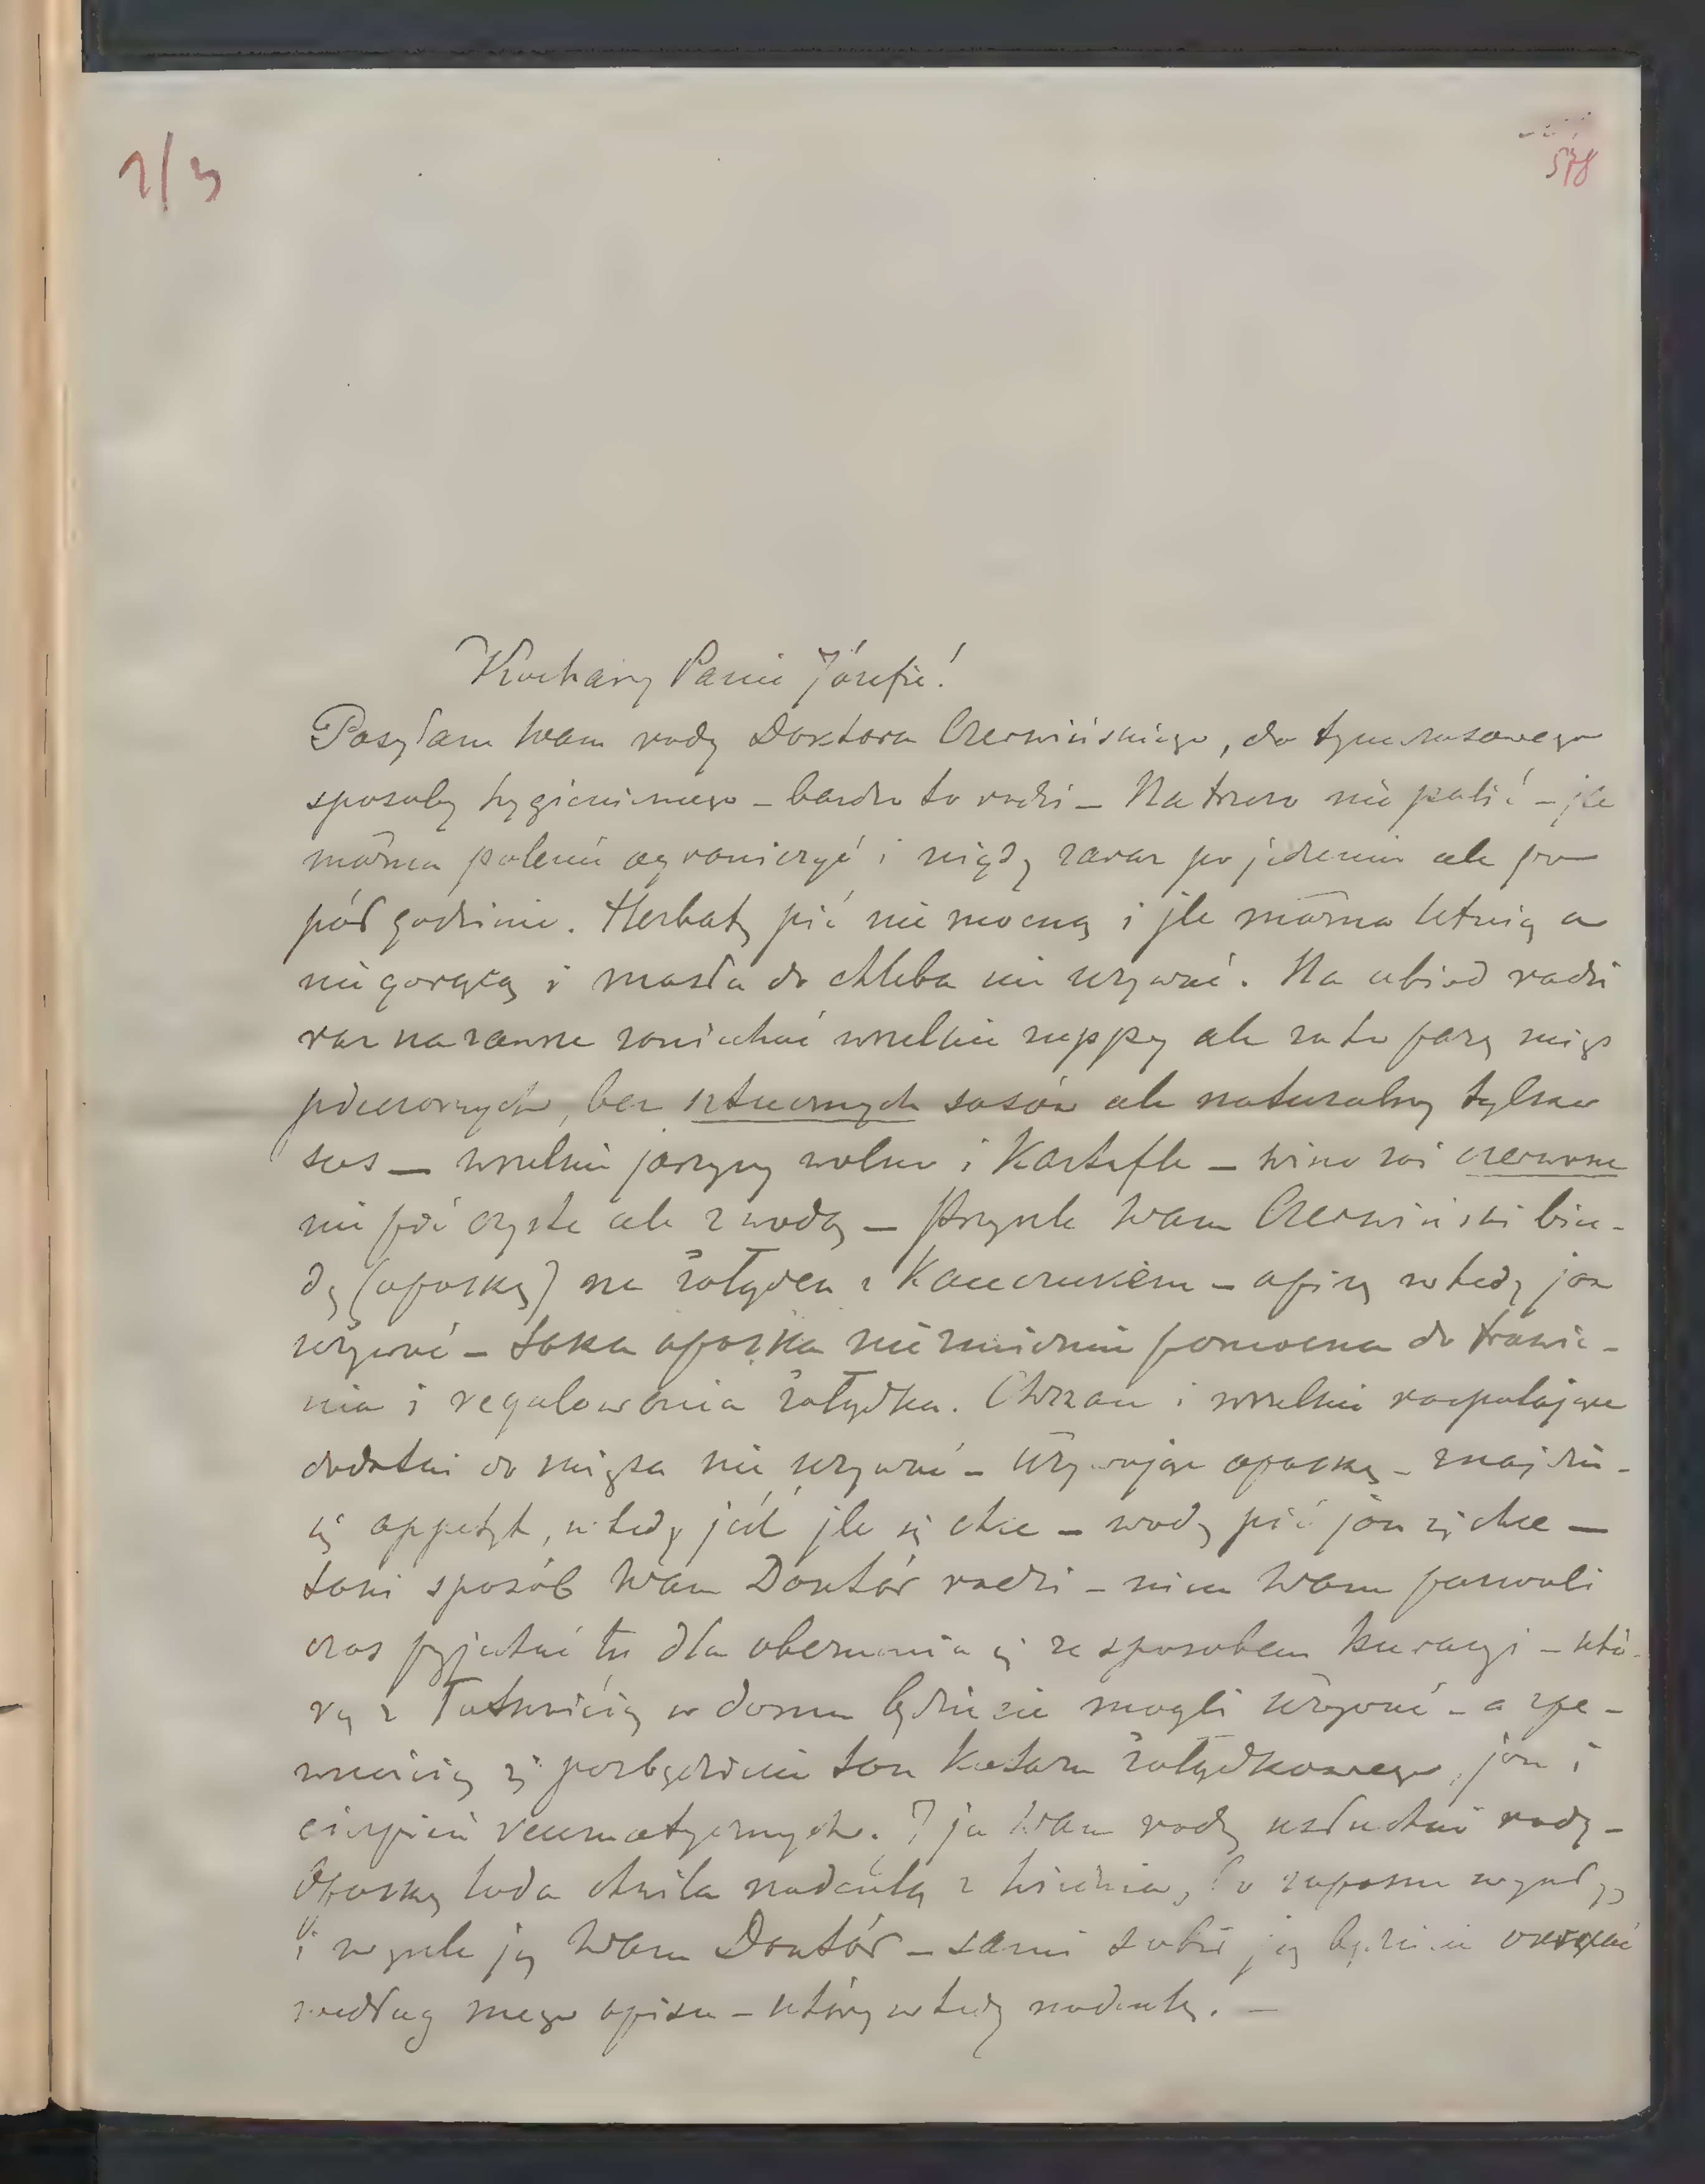 2/3
578
Kochany Panie Józefie!
Posyłam Wam rady Doktora Czerwińskiego, do tymczasowego
sposobu hygienicznego – bardzo to radzi – Na trzeźwo nie palić – jle
można palenie ograniczyć i nigdy zaraz po jedzeniu ale po
pół godzinie. Herbatę pić nie mocną i jle można letnią a
nie gorącą i masła do chleba nie używać. Na obiad radzi
raz na zawsze zaniechać wszelkie zuppy ale za to parę mięs
pieczonych, bez sztucznych sosów ale naturalny tylko
sos – wszelkie jarzyny wolno i Kartofle – wino zaś czerwone
nie pić czyste ale z wodą – Przyśle Wam Czerwiński bin-
dę (opaskę) na żołądek z Kauczukiem – opiszę wtedy jak
używać – taka opaska niezmiernie pomocna do trawie-
nia i regulowania żołądka. Chrzan i wszelkie rozpalające
dodatki do mięsa nie używać – Używając opaskę – znajdzie
się appetyt, wtedy jeść jle się chce – wody pić jak się chce –
taki sposób Wam Doktór radzi – nim Wam pozwoli
czas przyjechać tu dla obeznania się ze sposobem kuracyi – któ-
rą z łatwością w domu będziecie mogli używać – a zpe-
wnością się pozbędziecie tak kataru żołądkowego, jak i
cierpień reumatycznych. I ja Wam radzę usłuchać rady –
Opaskę lada chwila nadeślą z Wiednia,
i wyśle ją Wam Doktór – sami sobie ją będziecie
według mego opisu – który wtedy nadeślę. –